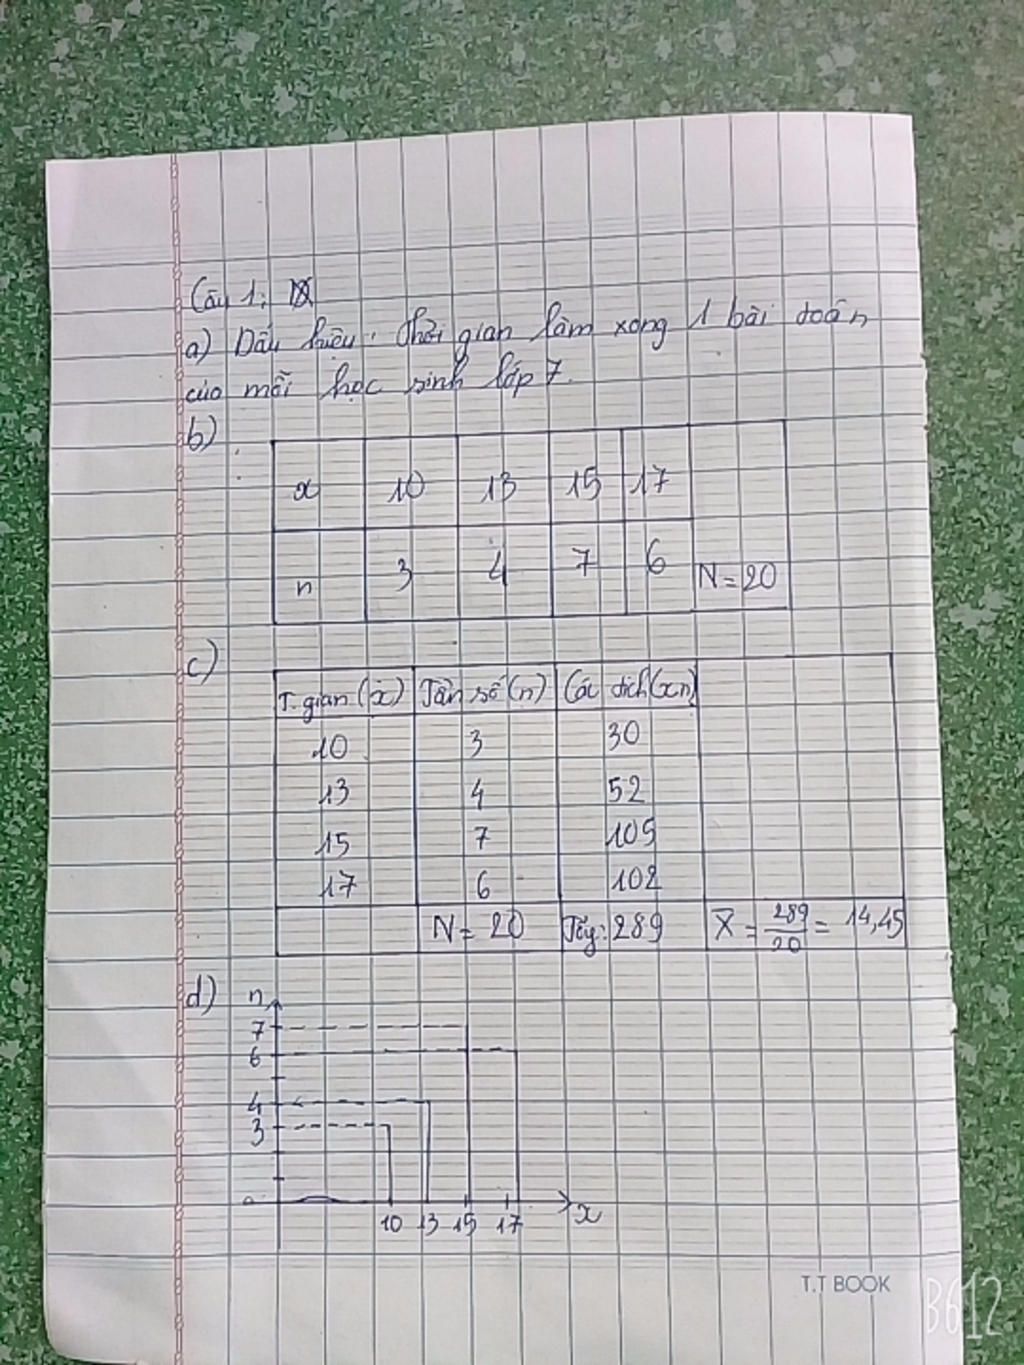 Câu 1:
a) Dấu hiệu: Thời gian làm xong 1 bài toán
của mỗi học sinh lớp 7.
b)
x 10 13 15 17
n 3 4 7 6 N = 20
c)
T. gian (x) Tần số (n) Các tích (xn)
10 3 30
13 4 52
15 7 105
17 6 102
N = 20 289 X̄ = 289/20 = 14,45
d) n
7
6
4
3
0
10 13 15 17 x
T.T BOOK
B612